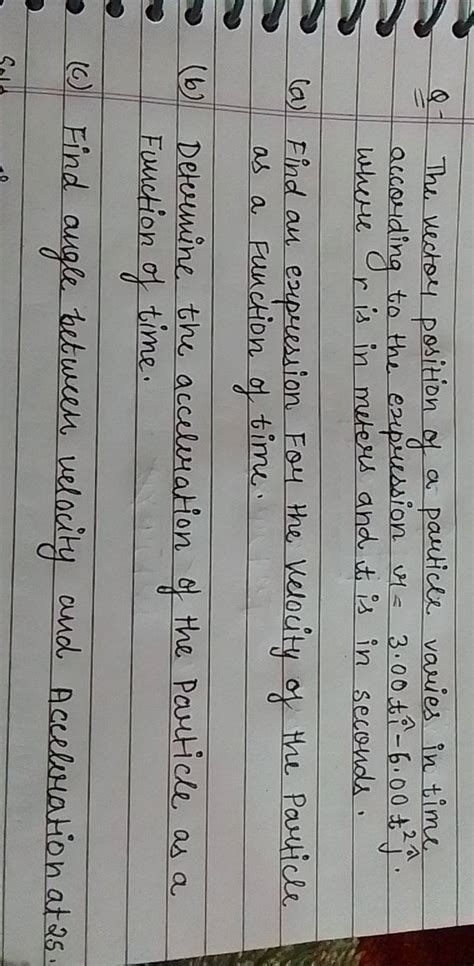 Q- The vector position of a particle varies in time
according to the expression r = 3.00 t î - 6.00 t² ĵ.
where r is in meters and t is in seconds.
(a) Find an expression For the velocity of the Particle
as a Function of time.
(b) Determine the acceleration of the Particle as a
Function of time.
(c) Find angle between velocity and Acceleration at 2s.